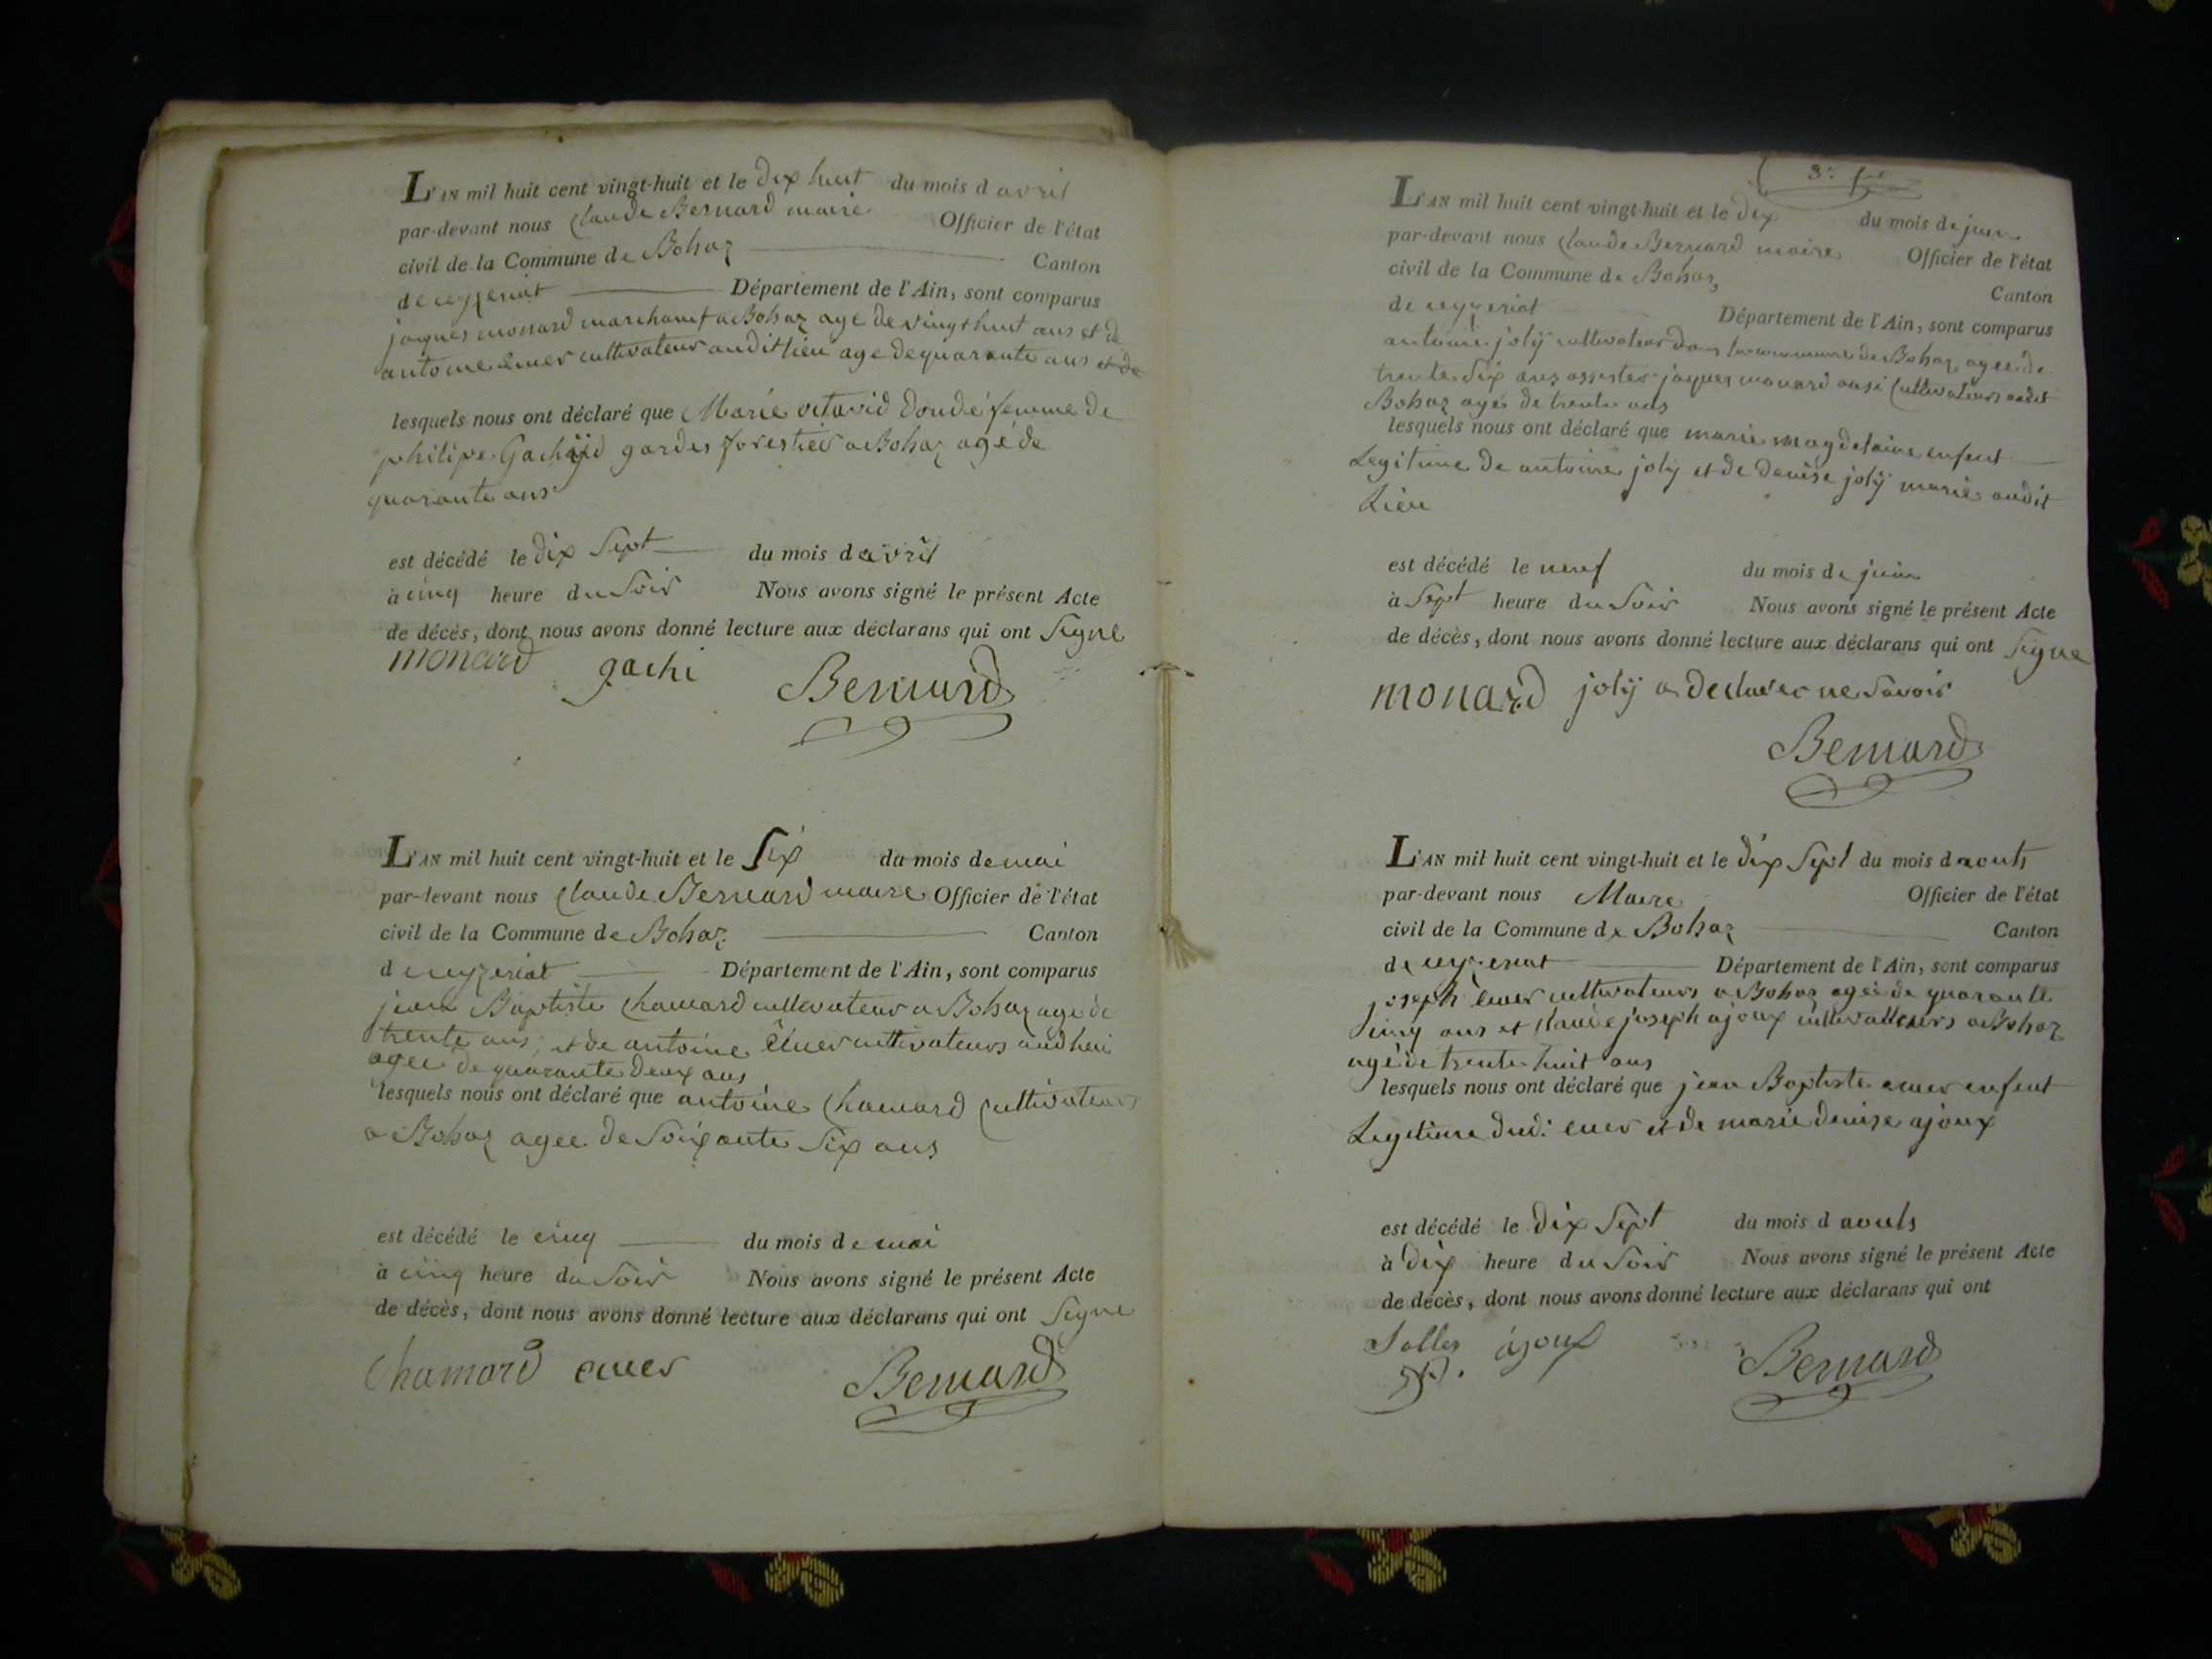 L'AN mil huit cent vingt-huit et le dix huit du mois d avril
par-devant nous Claude Bernard maire Officier de l'état
civil de la Commune de Bohaz Canton
de ceyzeriat Département de l'Ain, sont comparus
jaques monard marchand a Bohaz age de vingt huit ans et de
antoine cultivateur audit lieu age de quarante ans et de
lesquels nous ont déclaré que Marie femme de
philipe gardes forestier a Bohaz agé de
quarante ans
est décédé le dix Sept du mois d avril
à cinq heure du Soir Nous avons signé le présent Acte
de décès, dont nous avons donné lecture aux déclarans qui ont Signe
monard gachi Bernard
L'AN mil huit cent vingt-huit et le Six du mois de mai
par-devant nous Claude Bernard maire Officier de l'état
civil de la Commune de Bohaz Canton
de ceyzeriat Département de l'Ain, sont comparus
jean Baptiste Chamard cultivateur a Bohaz age de
trente ans, et de antoine cultivateurs
agee de quarante deux ans
lesquels nous ont déclaré que antoine Chamard Cultivateurs
a Bohaz agee de Soixante Six ans
est décédé le cinq du mois de mai
à cinq heure du Soir Nous avons signé le présent Acte
de décès, dont nous avons donné lecture aux déclarans qui ont Signe
Chamard Bernard
L'AN mil huit cent vingt-huit et le dix du mois de juin
par-devant nous Claude Bernard maire Officier de l'état
civil de la Commune de Bohaz Canton
de ceyzeriat Département de l'Ain, sont comparus
antoine joly cultivateur dans la commune de Bohaz agee de
trente Six ans jaques monard Cultivateurs audit
Bohaz agés de trente ans
lesquels nous ont déclaré que marie magdelaine enfent
Legitime de antoine joly et de denise joly marie audit
Lieu
est décédé le neuf du mois de juin
à Sept heure du Soir Nous avons signé le présent Acte
de décès, dont nous avons donné lecture aux déclarans qui ont Signe
monard joly a declarer ne Savoir
Bernard
L'AN mil huit cent vingt-huit et le dix Sept du mois d aouts
par-devant nous Maire Officier de l'état
civil de la Commune de Bohaz Canton
de ceyzeriat Département de l'Ain, sont comparus
joseph cultivateurs a Bohaz agée de quarante
cinq ans et Claude joseph ajoux cultivateurs a Bohaz
agé de trente huit ans
lesquels nous ont déclaré que jean Baptiste enfent
Legitime et de marie denise ajoux
est décédé le dix Sept du mois d aouts
à dix heure du Soir Nous avons signé le présent Acte
de décès, dont nous avons donné lecture aux déclarans qui ont
ajoux Bernard